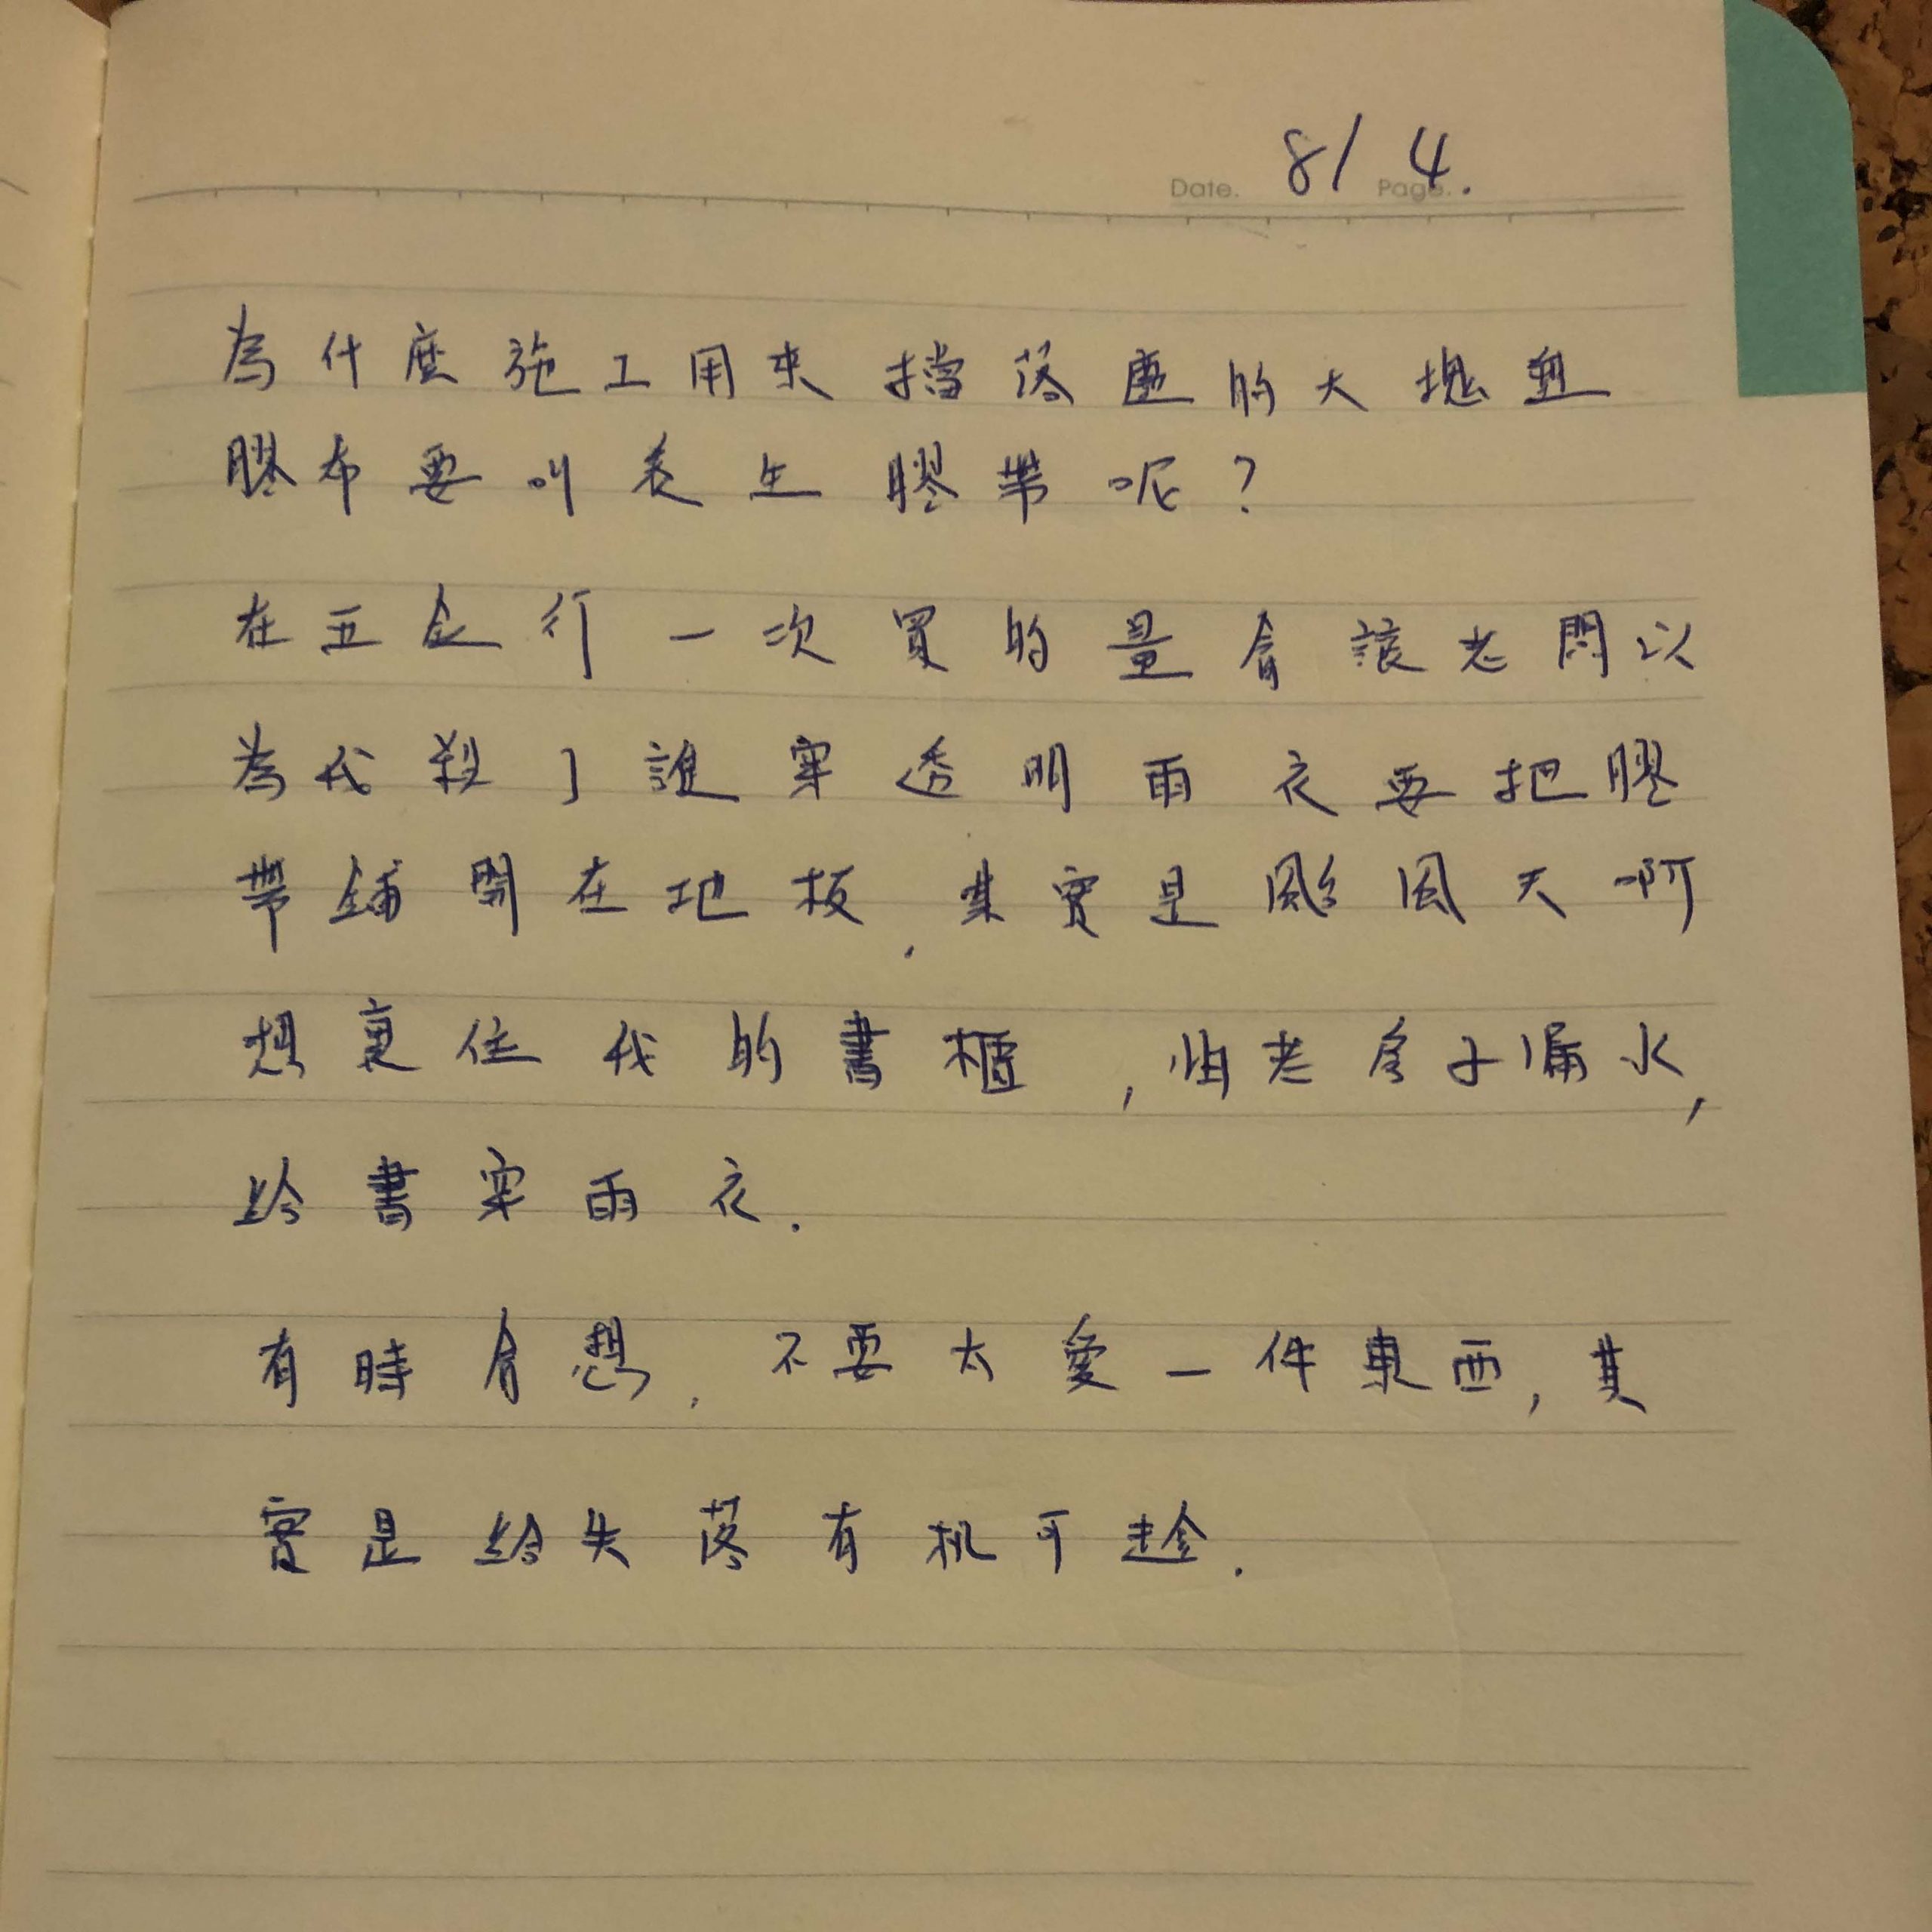 Date. 8/ Page. 4.
為什麼施工用來擋落塵的大塊塑
膠布要叫養生膠帶呢？
在五金行一次買的量會讓老闆以
為我殺了誰穿透明雨衣要把膠
帶鋪開在地板，其實是颱風天啊
想裹住我的書櫃，怕老房子漏水，
給書穿雨衣.
有時會想，不要太愛一件東西，其
實是給失落有机可趁.